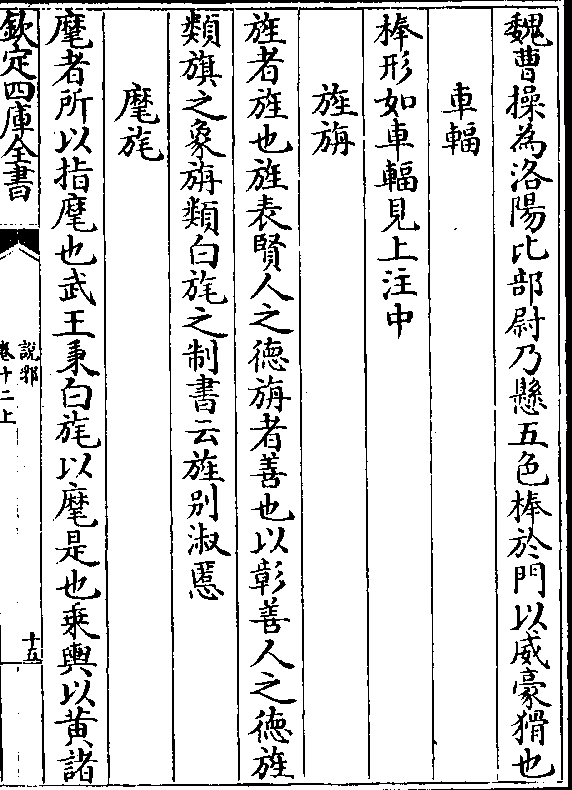 魏曹操為洛陽北部尉乃懸五色棒於門以威豪猾也
車輻
棒形如車輻見上注中
旌旃
旌者旌也旌表賢人之德旃者善也以彰善人之德旌
類旗之象旃類白旄之制書云旌別淑慝
麾旄
麾者所以指麾也武王秉白旄以麾是也乗輿以黄諸
欽定四庫全書
說郛
卷十二上
十五